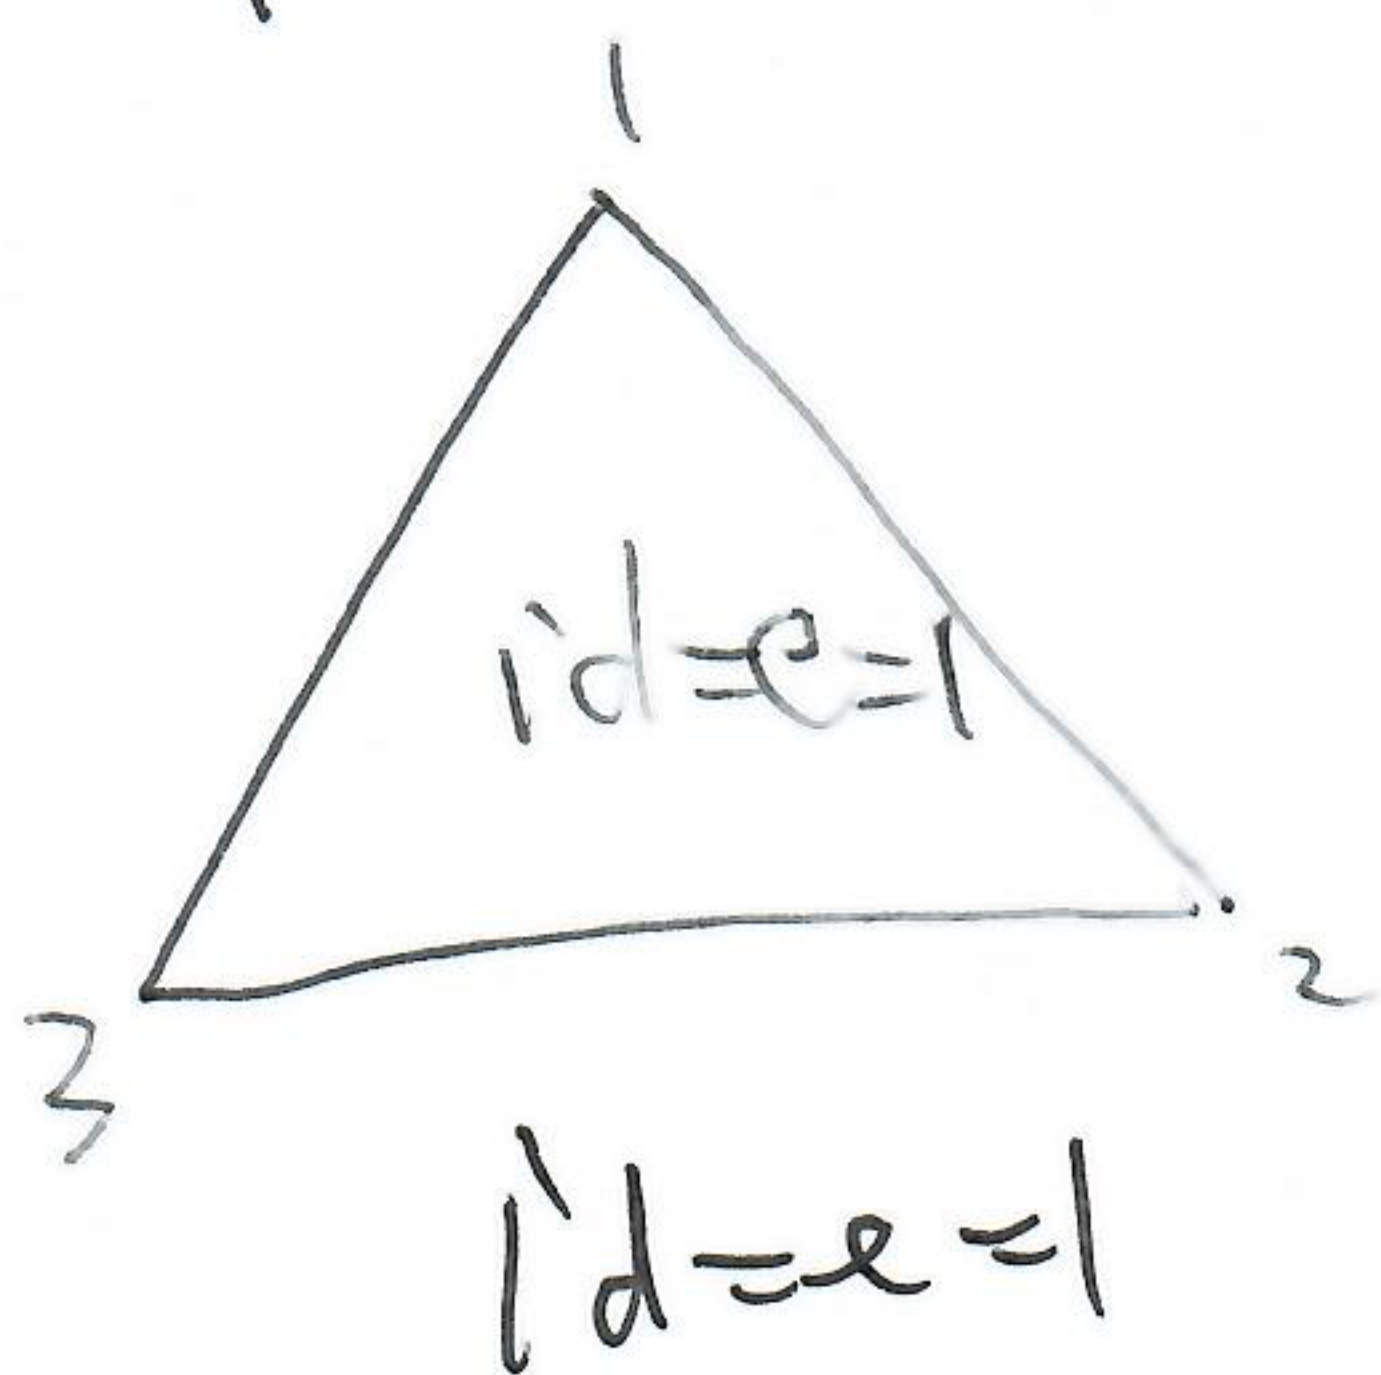 1
id=e=1
3 2
id=e=1